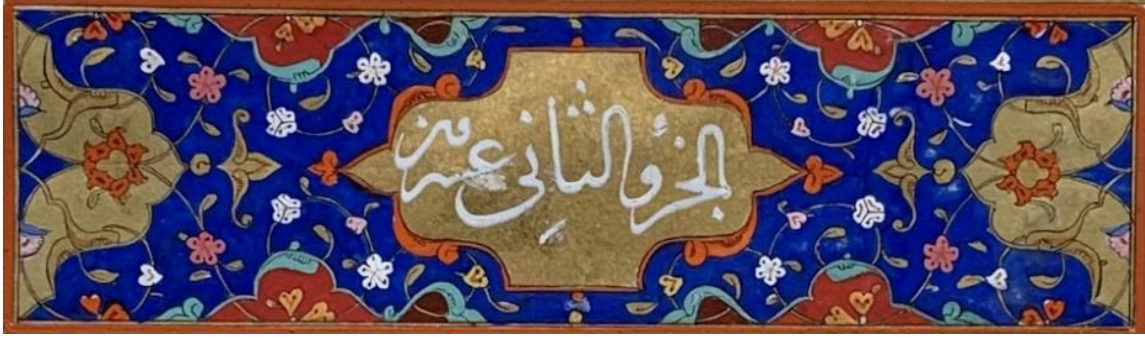 الجزؤ الثانى عشر من